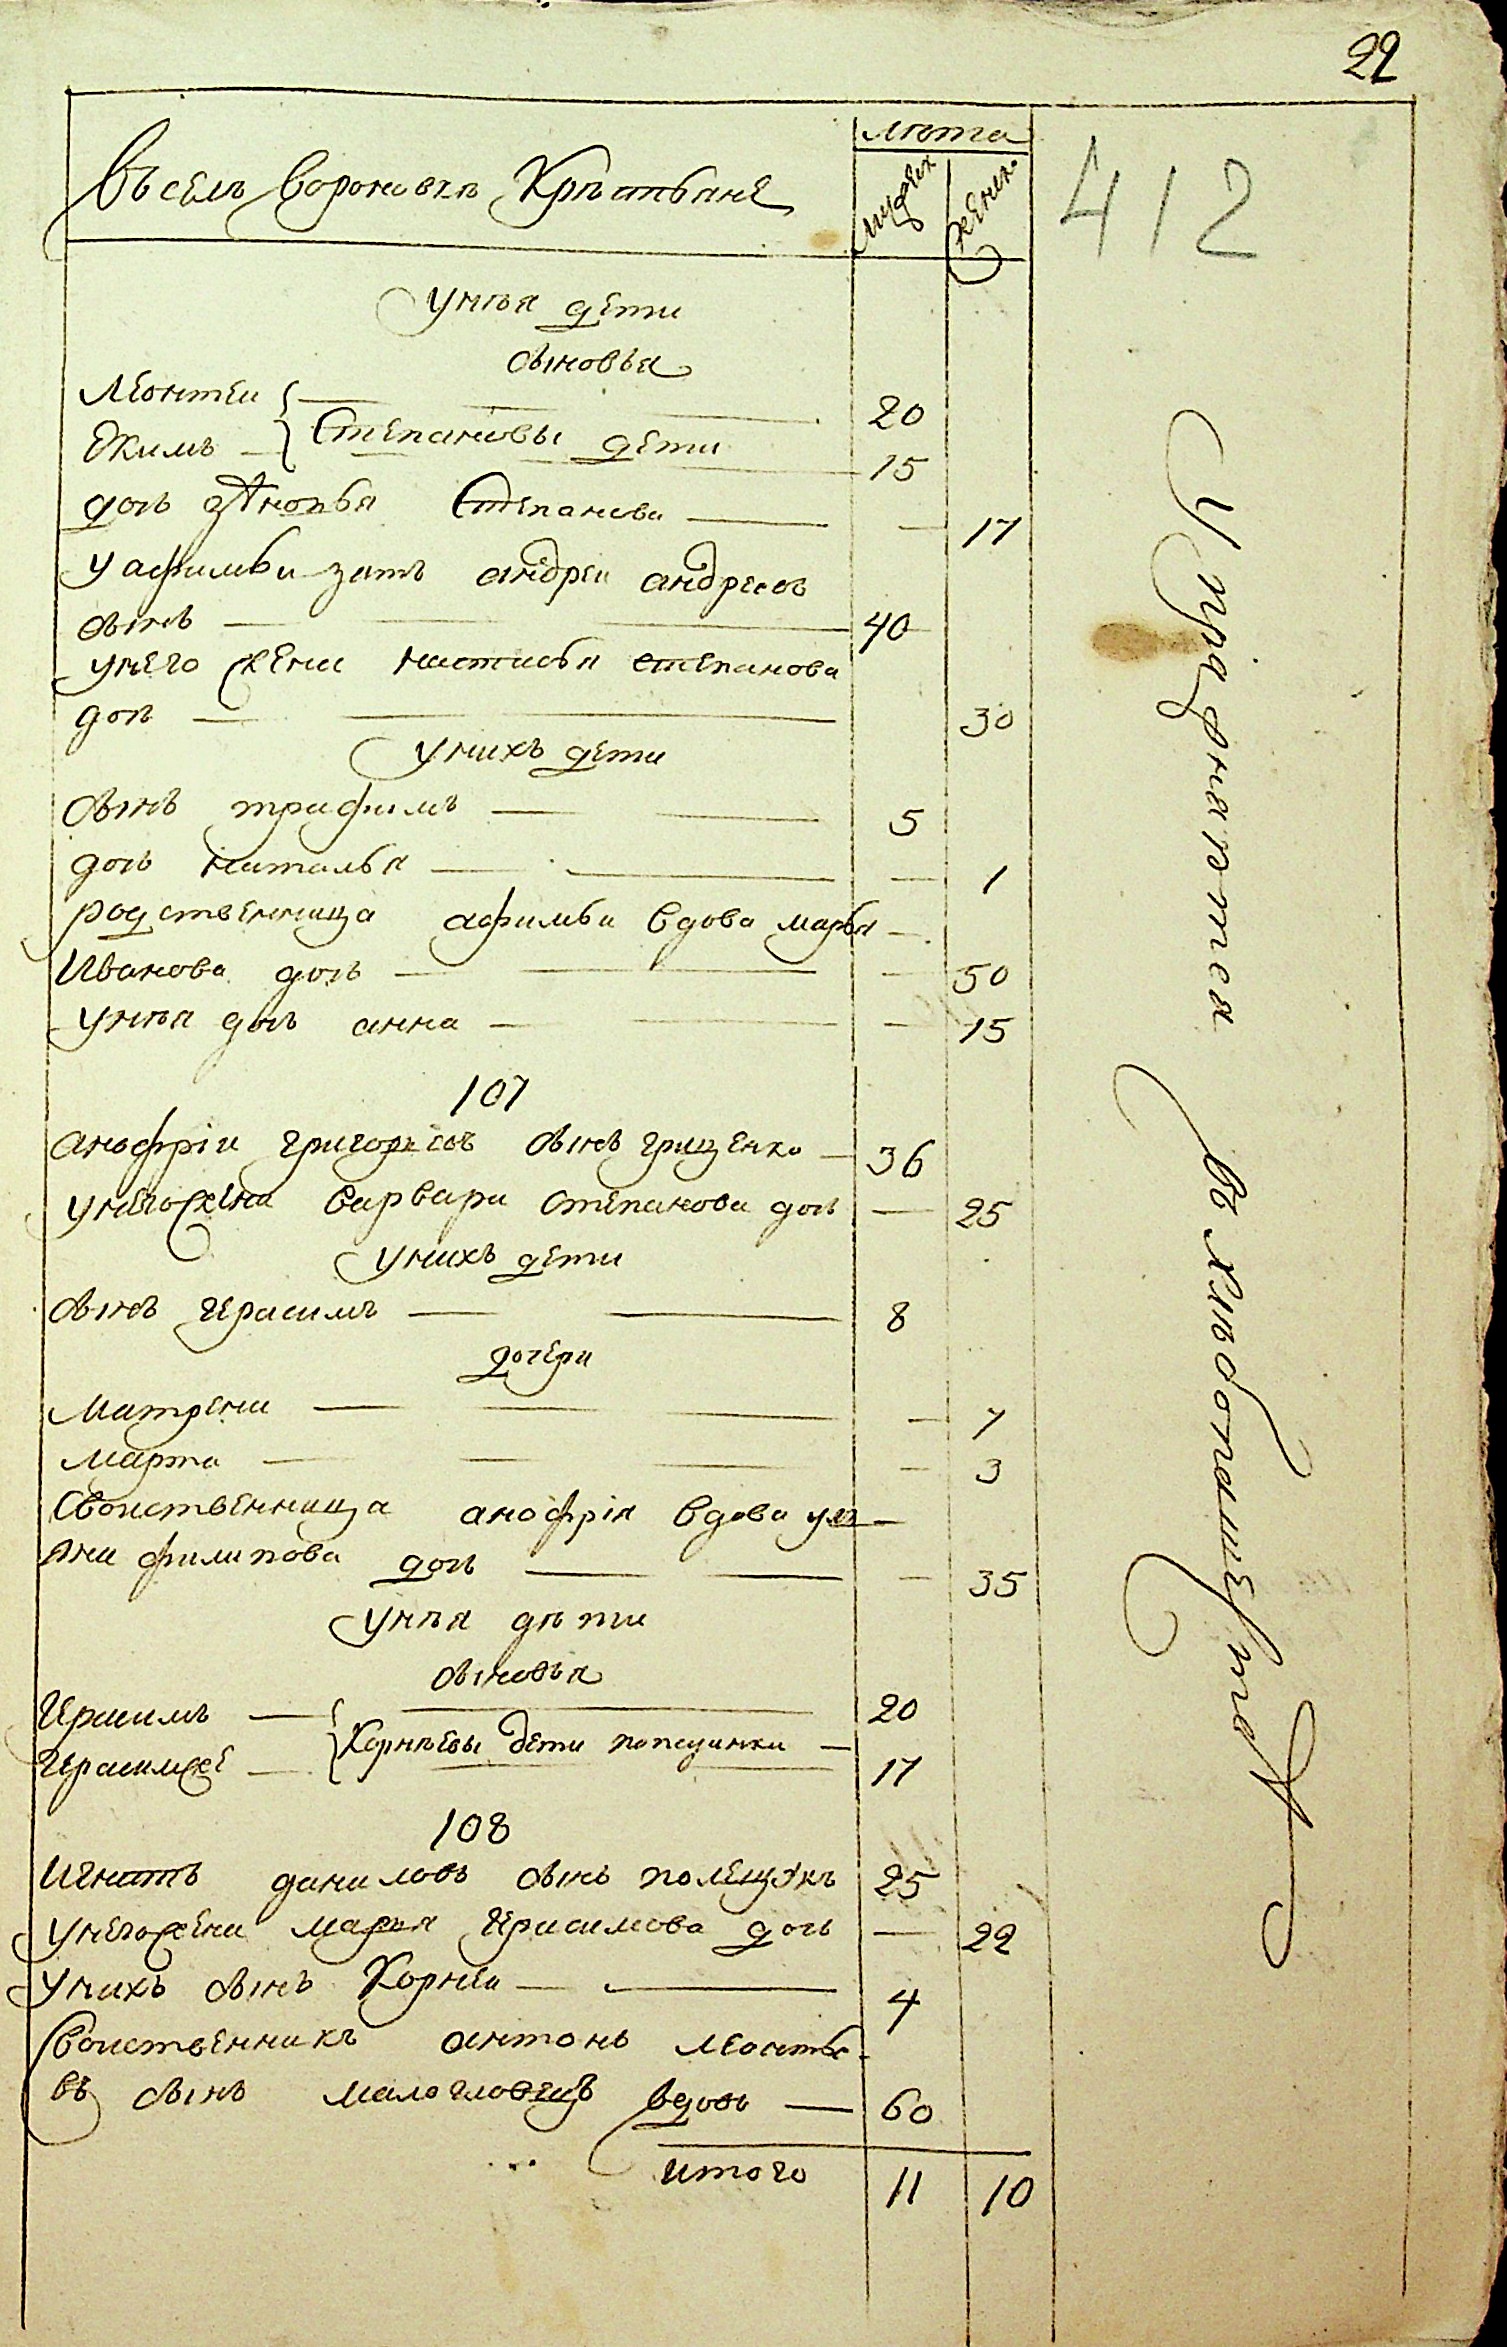 22
412
лѣта
Въ селѣ Вороновкѣ Крѣстьяне
мужеск
женск.
У нѣя дети
сыновья
Леонтеи
20
Екимъ
Степановы дети
15
дочь Зѣновья Степанова
17
у афимьи зать андреи андреевъ
сынъ
40
у него жена настасья степанова
дочь
30
у нихъ дети
сынъ трифимъ
5
дочь наталья
1
родственница афимьи вдова марья
Иванова дочь
50
у нѣя дочь анна
15
107
анофріи григорьевъ сынъ грищенко
36
у него жена варвара степанова дочь
25
у нихъ дети
сынъ герасимъ
8
дочери
матрена
7
марта
3
Своиственница анофрія вдова улі
яна филипова дочь
35
у нѣя дѣти
сыновья
Герасимъ
20
Корнѣевы дети
Герасимже
17
108
Игнатъ даниловъ сынъ полещукъ
25
у него жена марья герасимова дочь
22
у нихъ сынъ Корнеи
4
Своиственникъ антонъ леонтье
въ сынъ вдовъ
60
итого
11 10
Упражняются
въ хлѣбопашествѣ